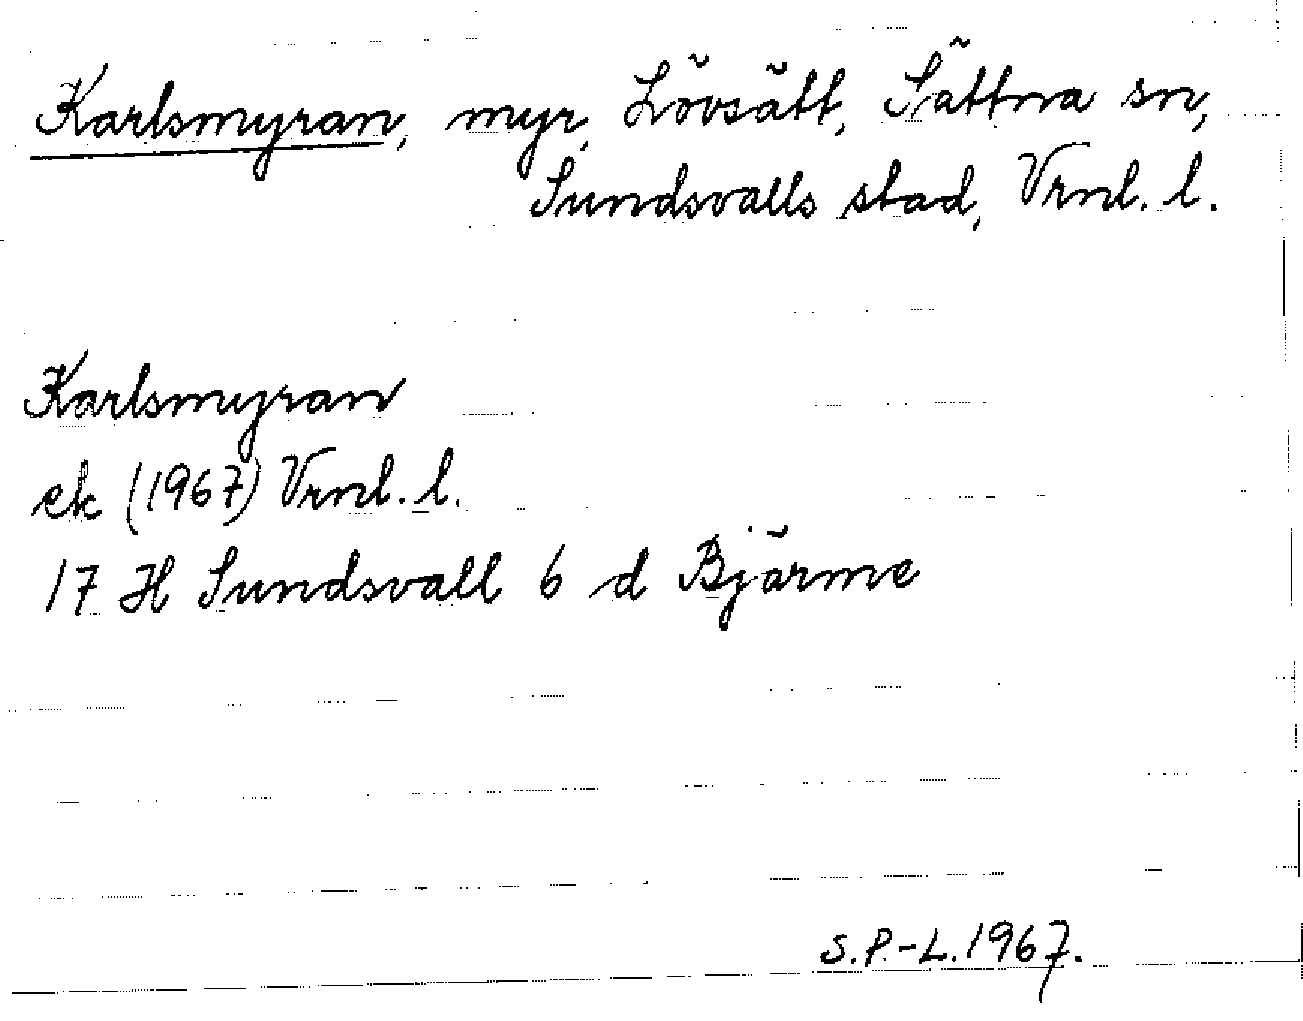 Karlsmyran, myr, Lövsätt, Sättna sn,
Sundsvalls stad, Vrnl. l.
Karlsmyran
ek (1967) Vrnl. l.
17 H Sundsvall 6 d Bjärme
S.P.-L. 1967.